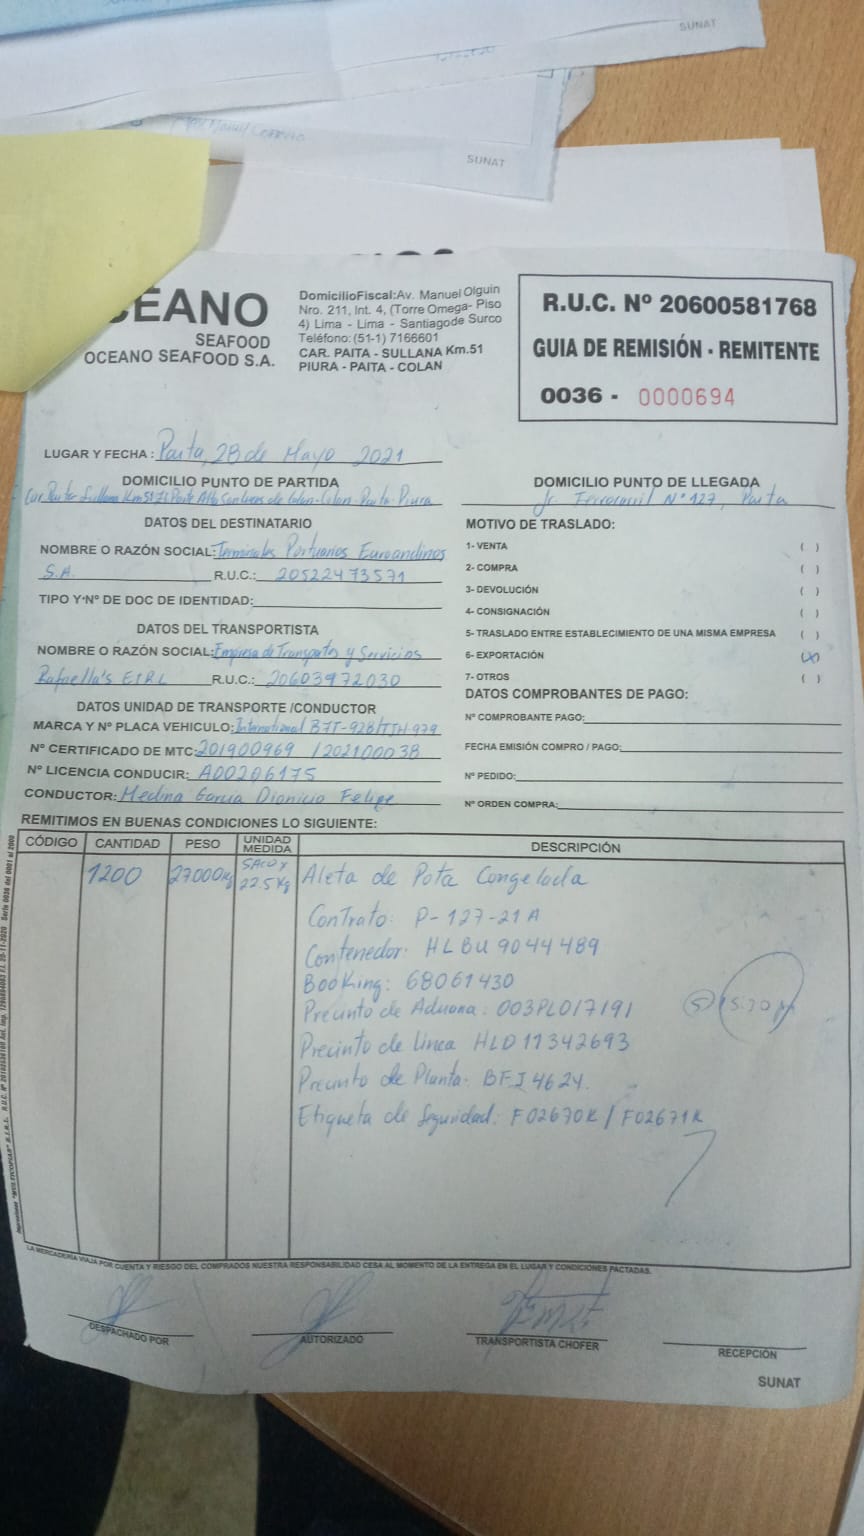 SUNAT
SUNAT
CEANO
SEAFOOD
OCEANO SEAFOOD S.A.
DomicilioFiscal:Av. Manuel Olguin
Nro. 211, Int. 4, (Torre Omega- Piso
4) Lima - Lima - Santiagode Surco
Teléfono:(51-1) 7166601
CAR. PAITA - SULLANA Km.51
PIURA - PAITA - COLAN
R.U.C. Nº 20600581768
GUIA DE REMISIÓN - REMITENTE
0036 - 0000694
LUGAR Y FECHA : Paita, 28 de Mayo 2021
DOMICILIO PUNTO DE PARTIDA
Colan-Paita-Piura
DOMICILIO PUNTO DE LLEGADA
Jr. Ferrocarril Nº 127, Paita
DATOS DEL DESTINATARIO
NOMBRE O RAZÓN SOCIAL: Terminales Portuarios Euroandinos
S.A. R.U.C.: 20522473571
TIPO Y Nº DE DOC DE IDENTIDAD:
DATOS DEL TRANSPORTISTA
NOMBRE O RAZÓN SOCIAL: Empresa de Transportes y Servicios
Rafaella's EIRL R.U.C.: 20603972030
DATOS UNIDAD DE TRANSPORTE /CONDUCTOR
MARCA Y Nº PLACA VEHICULO: International B7T-928/
Nº CERTIFICADO DE MTC: 201900969 / 202100038
Nº LICENCIA CONDUCIR: A00206175
CONDUCTOR: Medina Garcia Dionicio Felipe
MOTIVO DE TRASLADO:
1- VENTA ( )
2- COMPRA ( )
3- DEVOLUCIÓN ( )
4- CONSIGNACIÓN ( )
5- TRASLADO ENTRE ESTABLECIMIENTO DE UNA MISMA EMPRESA ( )
6- EXPORTACIÓN (X)
7- OTROS ( )
DATOS COMPROBANTES DE PAGO:
Nº COMPROBANTE PAGO:
FECHA EMISIÓN COMPRO / PAGO:
Nº PEDIDO:
Nº ORDEN COMPRA:
REMITIMOS EN BUENAS CONDICIONES LO SIGUIENTE:
CÓDIGO CANTIDAD PESO UNIDAD MEDIDA DESCRIPCIÓN
1200 27000kg Saco x 22.5 Kg Aleta de Pota Congelada
Contrato: P-127-21A
Contenedor: HLBU 9044489
Booking: 68061430
Precinto de Aduana: 003PL017191
Precinto de linea HLD11342693
Precinto de Planta: BFI4624
Etiqueta de Seguridad: F02670K / F02671K
LA MERCADERÍA VIAJA POR CUENTA Y RIESGO DEL COMPRADOS NUESTRA RESPONSABILIDAD CESA AL MOMENTO DE LA ENTREGA EN EL LUGAR Y CONDICIONES PACTADAS.
DESPACHADO POR
AUTORIZADO
TRANSPORTISTA CHOFER
RECEPCIÓN
SUNAT